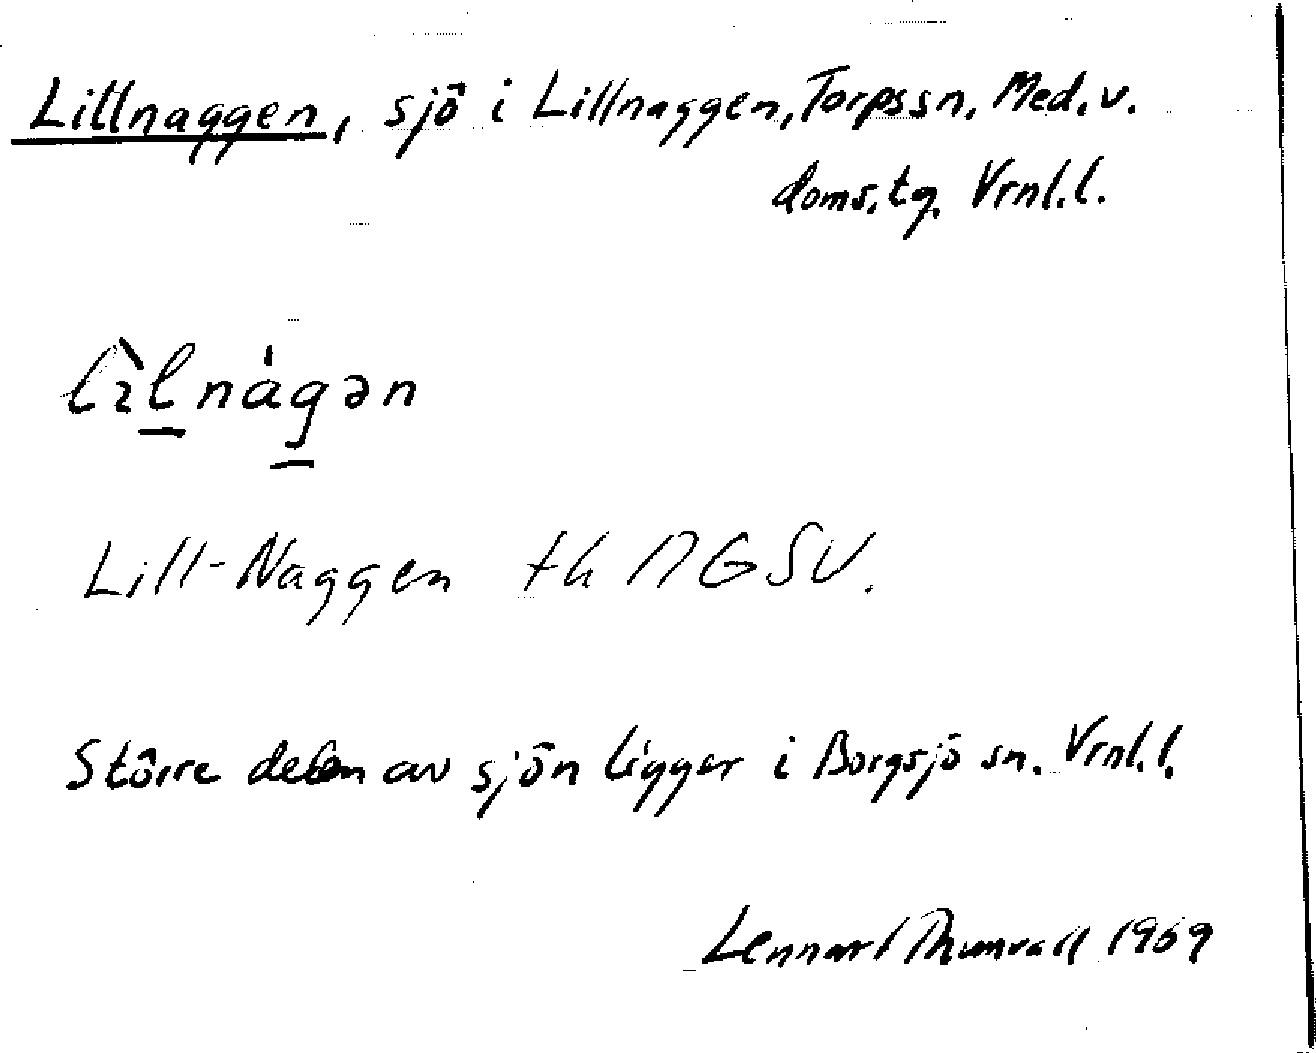 Lillnaggen, sjö i Lillnaggen, Torps sn, Med. v.
doms.tg. Vrnl.l.
lìl̠nág̠ən
Lill-Naggen
Större delen av sjön ligger i Borgsjö sn. Vrnl.l.
Lennart Thunvall 1969